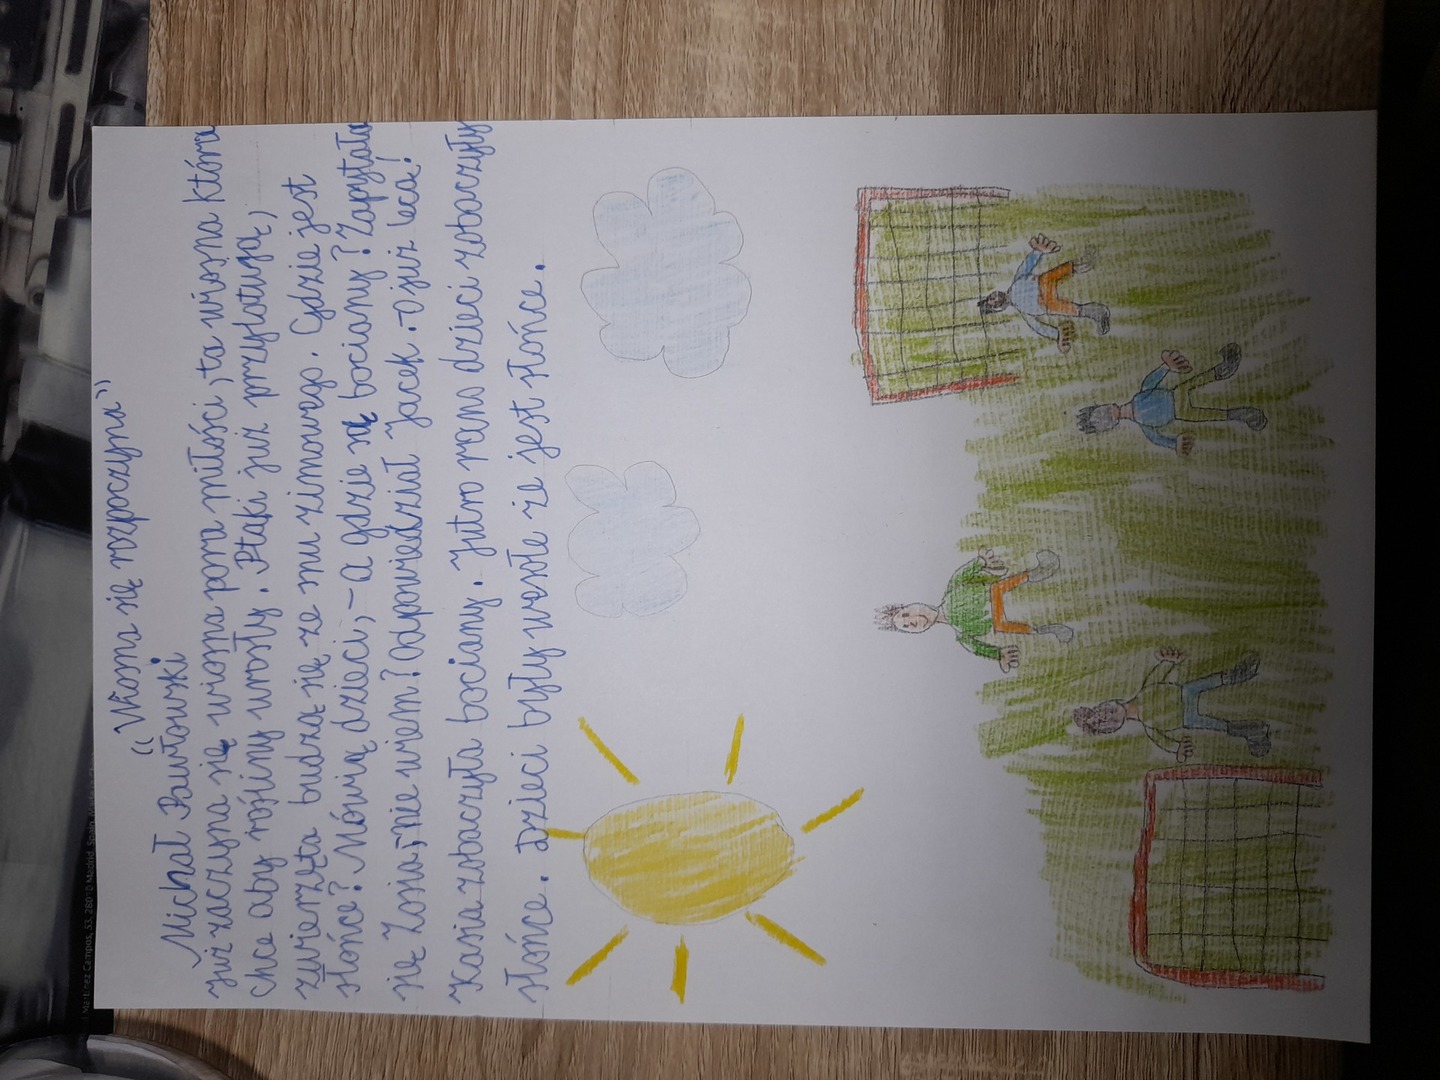 "Wiosna się rozpoczyna"
Michał Pawłowski
Już zaczyna się wiosna pora miłości, ta wiosna która
chce aby rośliny urosły. Ptaki już przylatują,
zwierzęta budzą się ze snu zimowego. Gdzie jest
słońce? Mówią dzieci, - A gdzie są bociany? Zapytała
się Zosia, nie wiem? odpowiedział Jacek. - O już lecą!
Kasia zobaczyła bociany. Jutro rano dzieci zobaczyły
słońce. Dzieci były wesołe że jest słońce.
Martínez Campos, 53. 28010 Madrid. Spain.